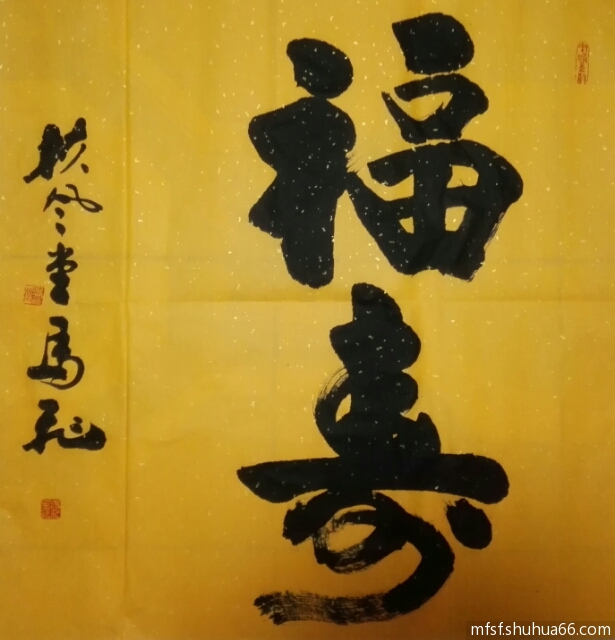 福寿
秋风堂马飞
mfsf.shuhua66.com